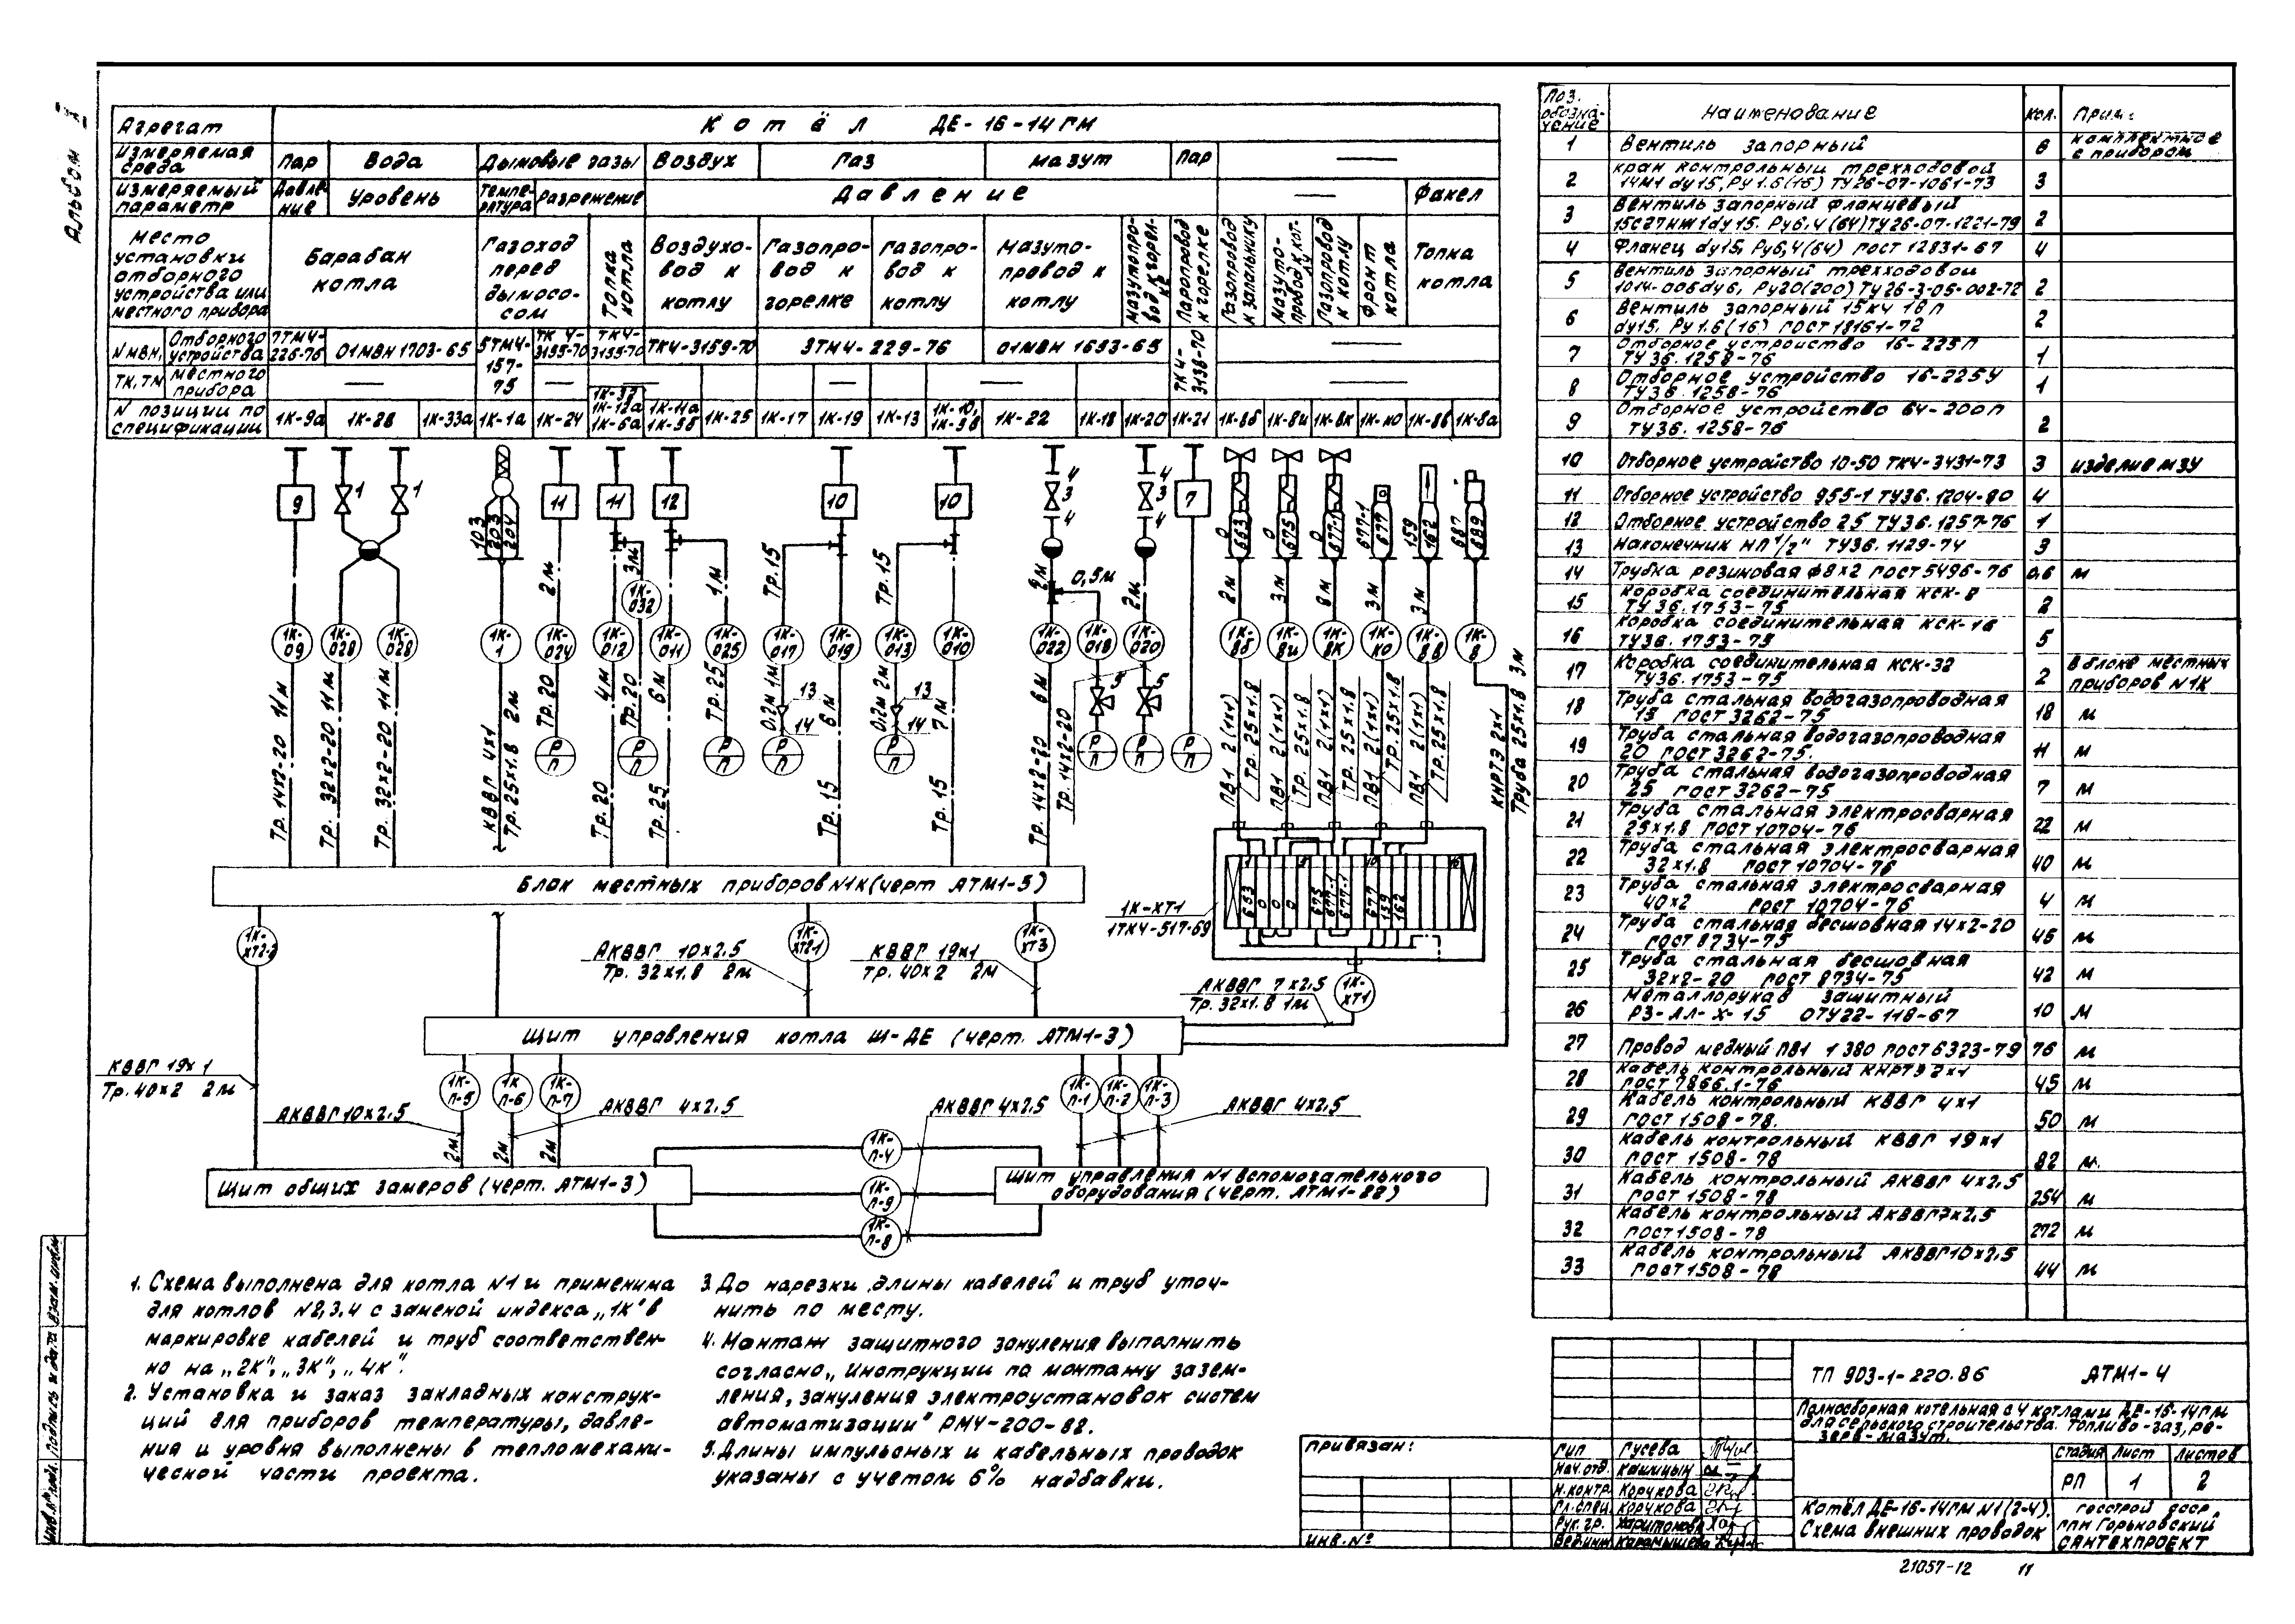 Альбом I
Агрегат
Котёл ДЕ-16-14ГМ
Измеряемая среда
Пар
Вода
Дымовые газы
Воздух
Газ
Мазут
Пар
Измеряемый параметр
Давление
Уровень
Температура
Разрежение
Давление
Факел
Место
установки
отборного
устройства или
местного прибора
Барабан
котла
Газоход
перед
дымосо-
сом
Топка котла
Воздухо-
вод к
котлу
Газопро-
вод к
горелке
Газопро-
вод к
котлу
Мазуто-
провод к
котлу
Мазутопро-
вод к горел-
ке
Паропровод
к горелке
Газопровод
к запальнику
Мазуто-
провод к кот-
лу
Газопровод
к котлу
Фронт
котла
Топка
котла
N МВН,
ТК, ТМ
Отборного устройства
7ТМ4-226-76
01МВН 1703-65
5ТМ4-157-75
ТК 4-3155-70
ТК4-3155-70
ТК4-3159-70
3ТМ4-229-76
01МВН 1653-65
ТК4-3138-70
местного прибора
N позиции по
спецификации
1К-9а
1К-28
1К-33а
1К-1а
1К-24
1К-32
1К-12а
1К-6а
1К-11а
1К-5б
1К-25
1К-17
1К-19
1К-13
1К-10,
1К-3в
1К-22
1К-18
1К-20
1К-21
1К-8б
1К-8и
1К-8к
1К-но
1К-8в
1К-8а
9
1
1
103
203
204
11
11
12
10
10
4
3
4
4
3
4
7
0
663
0
675
0
677-1
677-1
677
159
162
687
689
2м
3м
1м
Тр.15
Тр.15
2м
0,5м
2м
2м
3м
8м
3м
3м
1К-09
1К-028
1К-028
1К-1
1К-024
1К-012
1К-032
1К-011
1К-025
1К-017
1К-019
1К-013
1К-010
1К-022
1К-018
1К-020
1К-8б
1К-8и
1К-8к
1К-но
1К-8в
1К-8
Тр. 14х2-20 11м
Тр. 32х2-20 11м
Тр. 32х2-20 11м
КВВГ 4х1
Тр.25х1.8 2м
Тр.20
Тр.20 4м
Тр.20
Тр.25 6м
Тр.25
0.2м 1м
13
14
Тр.15 6м
0.2м 2м
13
14
Тр.15 7м
Тр. 14х2-20 6м
Тр. 14х2-20
5
5
Р П
Р П
Р П
Р П
Р П
Р П
Р П
Р П
ПВ1 2(1х1)
Тр. 25х1.8
ПВ1 2(1х1)
Тр. 25х1.8
ПВ1 2(1х1)
Тр. 25х1.8
ПВ1 2(1х1)
Тр. 25х1.8
ПВ1 2(1х1)
Тр.25х1.8
КНРТЭ 2х1
Труба 25х1.8 3м
Блок местных приборов N1К (черт АТМ1-5)
1К-ХТ1
1ТК4-517-69
1К-ХТ2-2
АКВВГ 10х2.5
Тр. 32х1.8 2м
1К-ХТ2-1
КВВГ 19х1
Тр. 40х2 2м
1К-ХТ3
АКВВГ 7х2.5
Тр. 32х1.8 1м
1К-ХТ1
Щит управления котла Щ-ДЕ (черт. АТМ1-3)
КВВГ 19х1
Тр. 40х2 2м
1К-П-5
1К-П-6
1К-П-7
1К-П-1
1К-П-2
1К-П-3
АКВВГ 10х2.5
АКВВГ 4х2.5
АКВВГ 4х2.5
АКВВГ 4х2.5
2м
2м
2м
1К-П-4
1К-П-9
1К-П-8
Щит общих замеров (черт. АТМ1-3)
Щит управления N1 вспомогательного
оборудования (черт. АТМ1-22)
1. Схема выполнена для котла N1 и применима
для котлов N2,3,4 с заменой индекса „1К" в
маркировке кабелей и труб соответствен-
но на „2К", „3К", „4К".
2. Установка и заказ закладных конструк-
ций для приборов температуры, давле-
ния и уровня выполнены в тепломехани-
ческой части проекта.
3. До нарезки длины кабелей и труб уточ-
нить по месту.
4. Монтаж защитного зануления выполнить
согласно „Инструкции по монтажу зазем-
ления, зануления электроустановок систем
автоматизации" РМ4-200-82.
5. Длины импульсных и кабельных проводок
указаны с учетом 6% надбавки.
Поз. обозна-чение
Наименование
Кол.
Прим.
1 Вентиль запорный 6 комплектное с прибором
2 Кран контрольный трехходовой
14М1 dу15, Ру 1.6 (16) ТУ26-07-1061-73 3
3 Вентиль запорный фланцевый
15с27нж1 dу15. Ру6,4 (64) ТУ26-07-1221-79 2
4 Фланец dу15, Ру6,4 (64) ГОСТ 12831-67 4
5 Вентиль запорный трехходовой
1014-00б dу6, Ру20(200) ТУ26-3-05-002-72 2
6 Вентиль запорный 15кч 18п
dу15, Ру 1.6 (16) ГОСТ 18161-72 2
7 Отборное устройство 16-225П
ТУ 36. 1258-76 1
8 Отборное устройство 16-225У
ТУ36. 1258-76 1
9 Отборное устройство 64-200П
ТУ36. 1258-76 2
10 Отборное устройство 10-50 ТК4-3431-73 3 изделие МЗУ
11 Отборное устройство 955-1 ТУ36. 1204-80 4
12 Отборное устройство 25 ТУ36. 1257-76 1
13 Наконечник НП 1/2" ТУ36. 1129-74 3
14 Трубка резиновая ф8х2 ГОСТ 5496-76 0,6 м
15 Коробка соединительная КСК-8
ТУ 36. 1753-75 2
16 Коробка соединительная КСК-16
ТУ36. 1753-75 5
17 Коробка соединительная КСК-32
ТУ36. 1753-75 2 в блоке местных приборов N1К
18 Труба стальная водогазопроводная
15 ГОСТ 3262-75 18 м
19 Труба стальная водогазопроводная
20 ГОСТ 3262-75. 11 м
20 Труба стальная водогазопроводная
25 ГОСТ 3262-75 7 м
21 Труба стальная электросварная
25х1.8 ГОСТ 10704-76 22 м
22 Труба стальная электросварная
32х1.8 ГОСТ 10704-76 40 м
23 Труба стальная электросварная
40х2 ГОСТ 10704-76 4 м
24 Труба стальная бесшовная 14х2-20
ГОСТ 8734-75 46 м
25 Труба стальная бесшовная
32х2-20 ГОСТ 8734-75 42 м
26 Металлорукав защитный
РЗ-АЛ-Х-15 ОТУ22-118-67 10 м
27 Провод медный ПВ1 1 380 ГОСТ 6323-79 76 м
28 Кабель контрольный КНРТЭ 2х1
ГОСТ 7866.1-76 45 м
29 Кабель контрольный КВВГ 4х1
ГОСТ 1508-78. 50 м
30 Кабель контрольный КВВГ 19х1
ГОСТ 1508-78 82 м.
31 Кабель контрольный АКВВГ 4х2,5
ГОСТ 1508-78 254 м
32 Кабель контрольный АКВВГ7х2,5
ГОСТ 1508-78 272 м
33 Кабель контрольный АКВВГ10х2,5
ГОСТ 1508-78 44 м
ТП 903-1-220.86 АТМ1-4
Полносборная котельная с 4 котлами ДЕ-16-14ГМ
для сельского строительства. Топливо-газ, ре-
зерв-мазут.
Стадия Лист Листов
РП 1 2
Котёл ДЕ-16-14ГМ N1(2-4).
Схема внешних проводок
Госстрой
ГПИ Горьковский
САНТЕХПРОЕКТ
Привязан:
Инв. №
ГИП Гусева
Нач.отд. Кашицын
Н.контр. Корчкова
Гл.спец. Корчкова
Рук. гр. Харитонова
Вед.инж. Карамышева
Инв.№ подл.
Подпись и дата
Взам.инв.№
21057-12 11